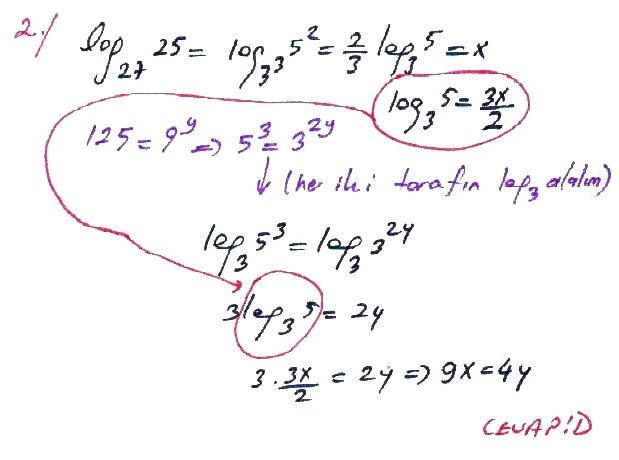 2./ log₂₇ 25 = log₃³ 5² = 2/3 log₃ 5 = x
log₃ 5 = 3x/2
125 = 9ʸ => 5³ = 3²ʸ
↓ (her iki tarafın log₃ alalım)
log₃ 5³ = log₃ 3²ʸ
3 log₃ 5 = 2y
3 · 3x/2 = 2y => 9x = 4y
CEVAP: D